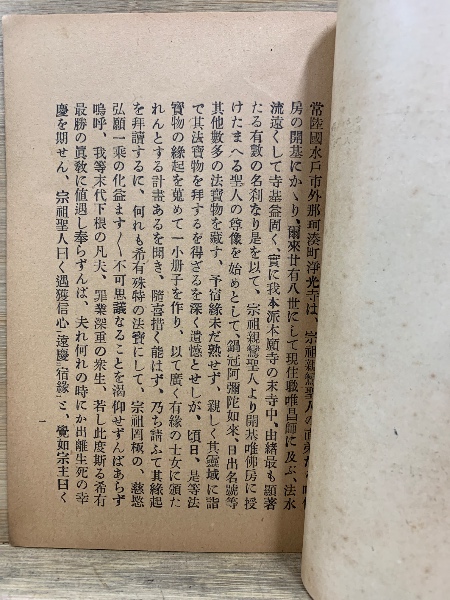 常陸國水戸市外那珂湊町淨光寺は、宗祖親鸞聖人の直弟
房の開基にかゝり、爾來廿有八世にして現住職唯昌師に及ぶ、法水
流遠くして寺基益固く、實に我本派本願寺の末寺中、由緒最も顯著
たる有數の名刹なり是を以て、宗祖親鸞聖人より開基唯佛房に授
けたまへる聖人の尊像を始めとして、鍋冠阿彌陀如來、日出名號等
其他數多の法寶物を藏す、予宿緣未だ熟せず、親しく其靈域に詣
で其法寶物を拜するを得ざるを深く遺憾とせしが、頃日、是等法
寶物の緣起を蒐めて一小册子を作り、以て廣く有緣の士女に頒た
れんとする計畫あるを聞き、隨喜措く能はず、乃ち請ふて其緣起
を拜讀するに、何れも希有殊特の法寶にして、宗祖罔極の、慈愍
弘願一乘の化益ます〳〵不可思議なることを渴仰せずんばあらず
嗚呼、我等末代下根の凡夫、罪業深重の衆生、若し此度斯る希有
最勝の眞敎に値遇し奉らずんば、夫れ何れの時にか出離生死の幸
慶を期せん、宗祖聖人曰く遇獲信心遠慶宿緣と、覺如宗主曰く
一